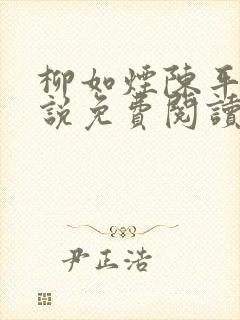 柳如煙陳平
說免費閱讀
尹正浩